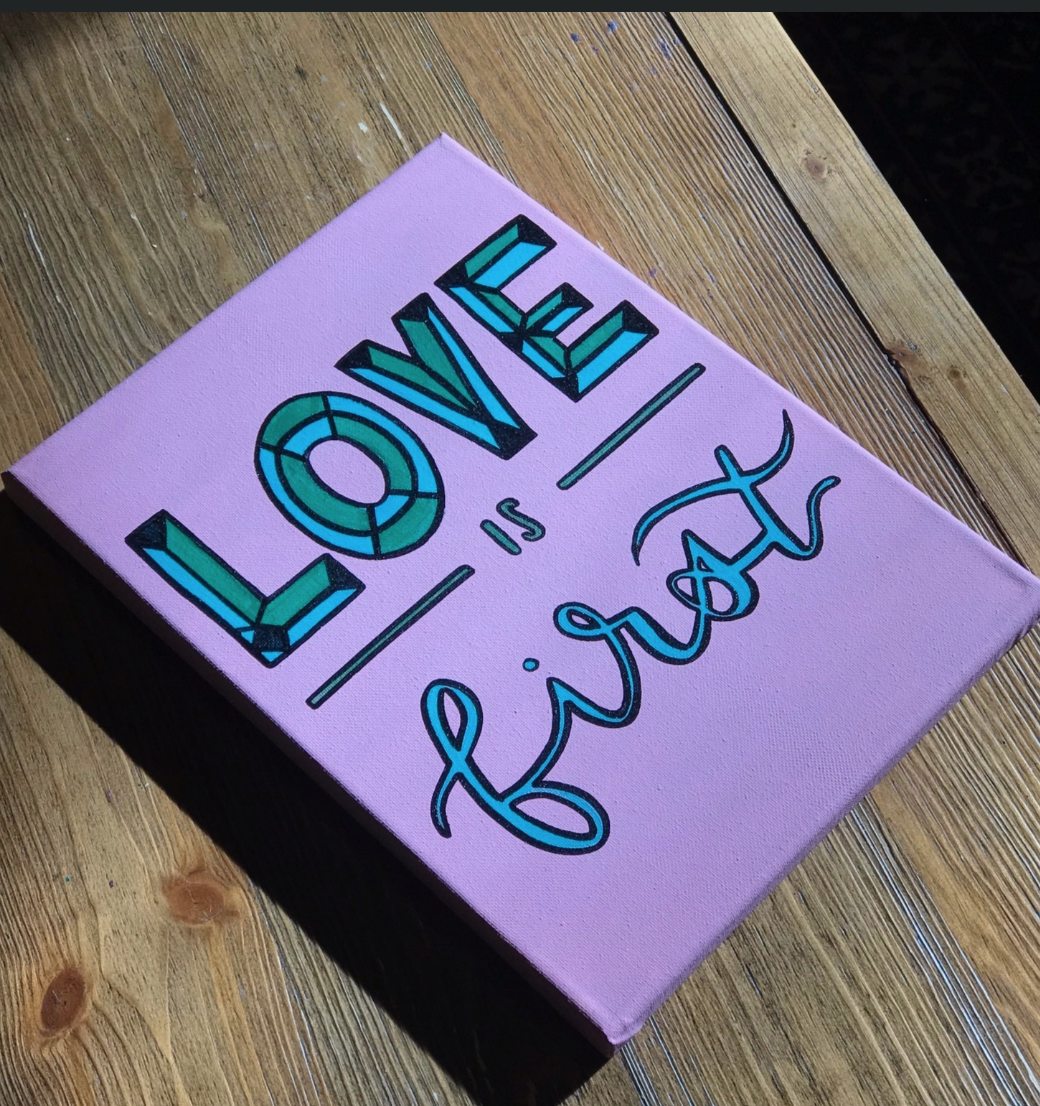 LOVE
IS
first